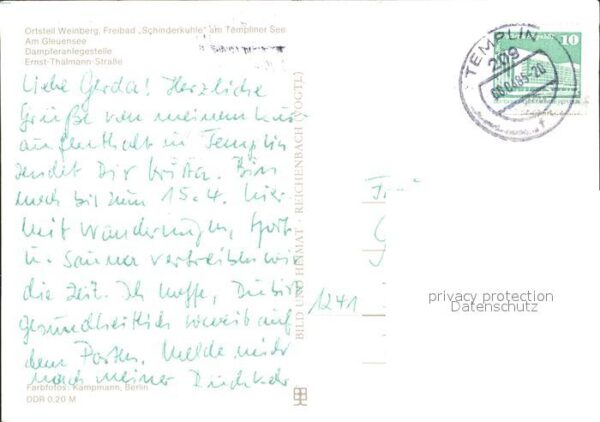 Ortsteil Weinberg, Freibad „Schinderkuhle" am Templiner See
Am Gleuensee
Dampferanlegestelle
Ernst-Thälmann-Straße
Liebe Gerda! Herzliche
Grüße von meinem Kur-
aufenthalt in Templin
sendet Dir Krista. Bin
noch bis zum 15.4. hier
mit Wanderungen, Sport
u. Sauna vertreiben wir
die Zeit. Ich hoffe, Du bist
gesundheitlich soweit auf
dem Posten. Melde mich
nach meiner Rückkehr
Farbfotos: Kampmann, Berlin
DDR 0,20 M
BILD UND HEIMAT · REICHENBACH (VOGTL)
TEMPLIN
209
10
1241
privacy protection
Datenschutz